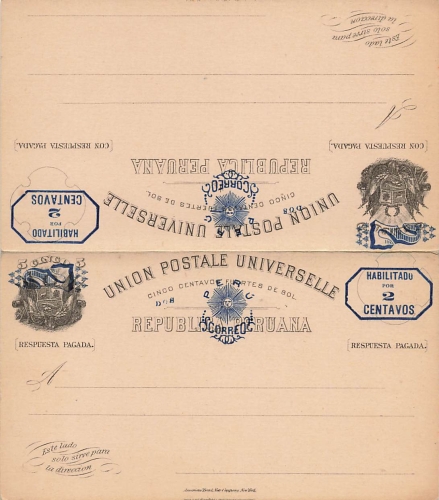 Este lado
solo sirve para
la direccion
A
[CON RESPUESTA PAGADA.]
REPUBLICA PERUANA
CINCO CENTAVOS FUERTES DE SOL
UNION POSTALE UNIVERSELLE
HABILITADO
POR
2
CENTAVOS
DOS
CORREOS
UNION POSTALE UNIVERSELLE
CINCO CENTAVOS FUERTES DE SOL
DOS
PERU
CORREOS
REPUBLICA PERUANA
HABILITADO
POR
2
CENTAVOS
[RESPUESTA PAGADA.]
[RESPUESTA PAGADA.]
A
Este lado
solo sirve para
la direccion